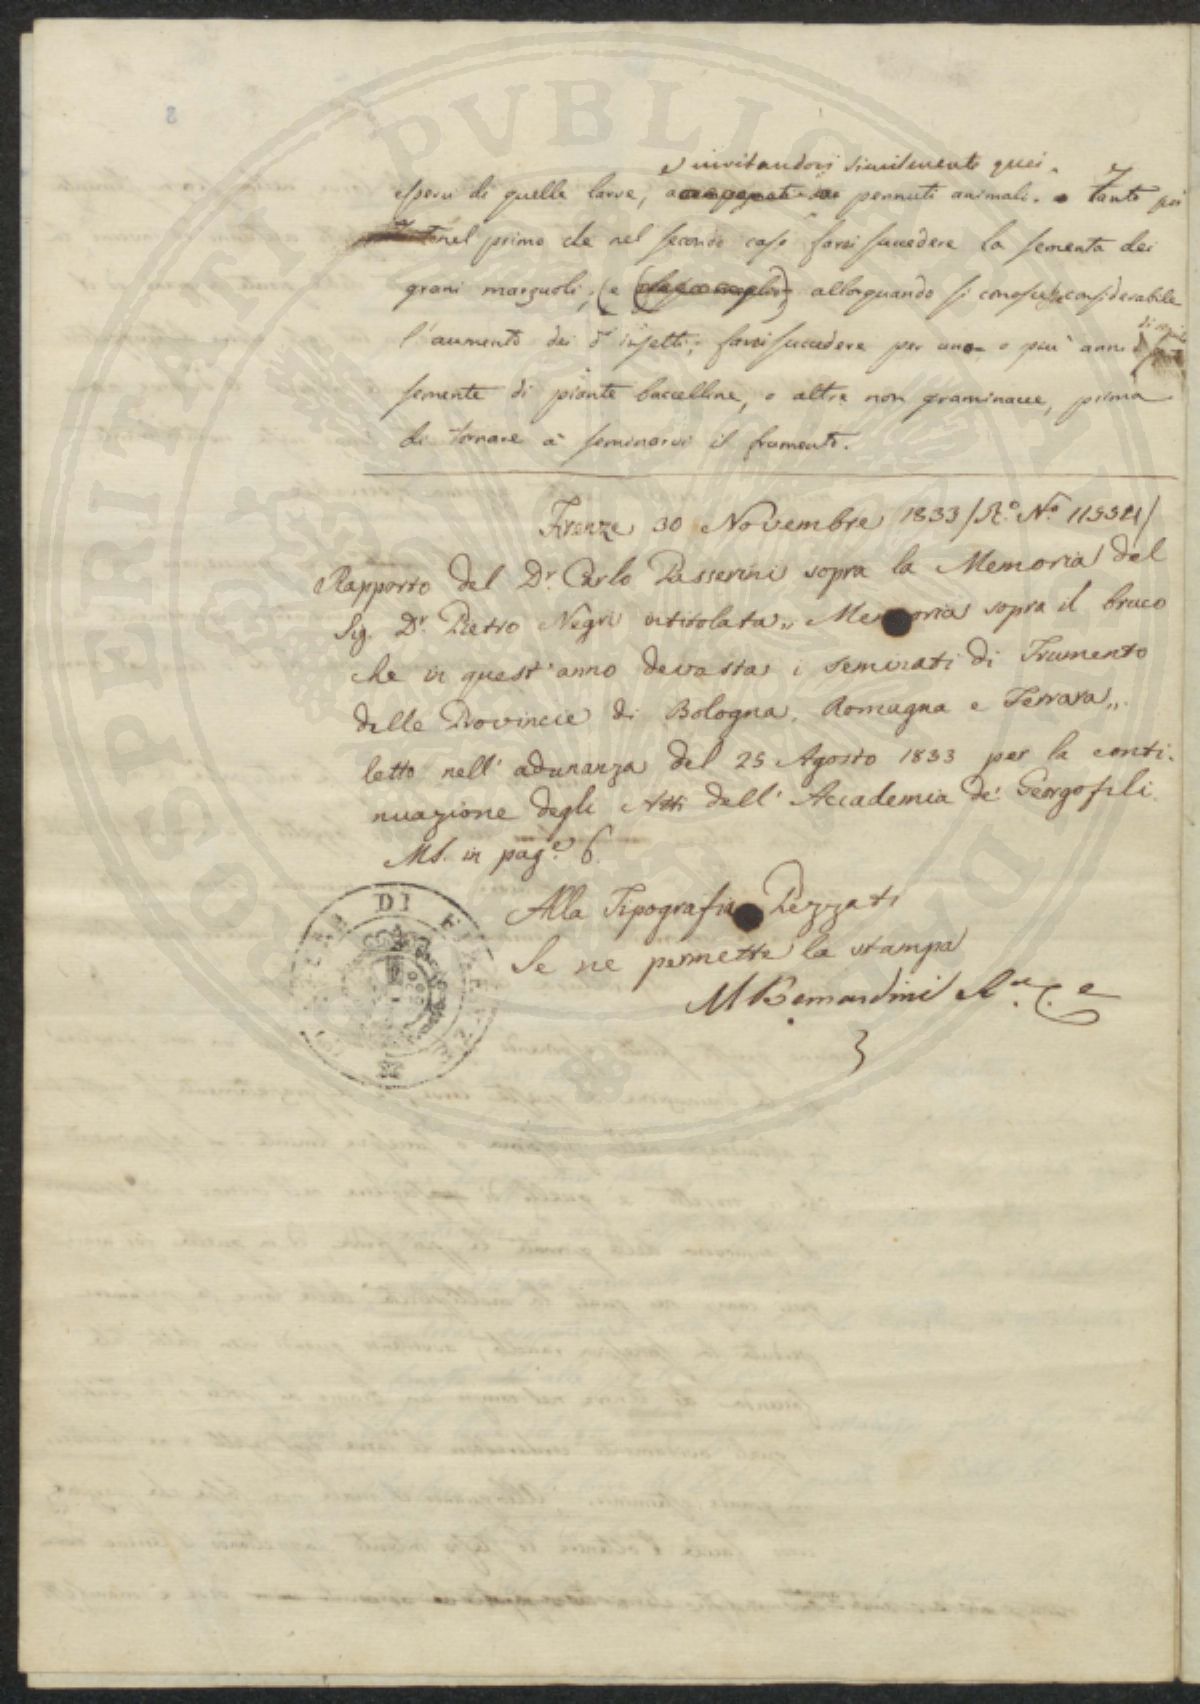 invitandovi similmente quei
spersi di quelle larve, pennuti animali. Tanto poi
nel primo che nel secondo caso farvi succedere la sementa dei
grani marzuoli, (e allorquando si conosce considerabile
l'aumento dei dⁱ insetti; farvi succedere per uno o più anni
semente di piante baccelline, o altre non graminacee, prima
di tornare a seminarvi il frumento.
Firenze 30 Novembre 1833
Rapporto del Dr. Carlo Passerini sopra la Memoria del
Sig. Dr. Pietro Negri intitolata,, Memoria sopra il bruco
che in quest'anno devasta i seminati di Frumento
delle Provincie di Bologna, Romagna e Ferrara,,
letto nell'adunanza del 25 Agosto 1833 per la conti-
nuazione degli Atti dell'Accademia de' Georgofili
MS. in pag.e 6.
Alla Tipografia Pezzati
Se ne permette la stampa
M Bernardini
DI
PVBLICAE
PROSPERITATI